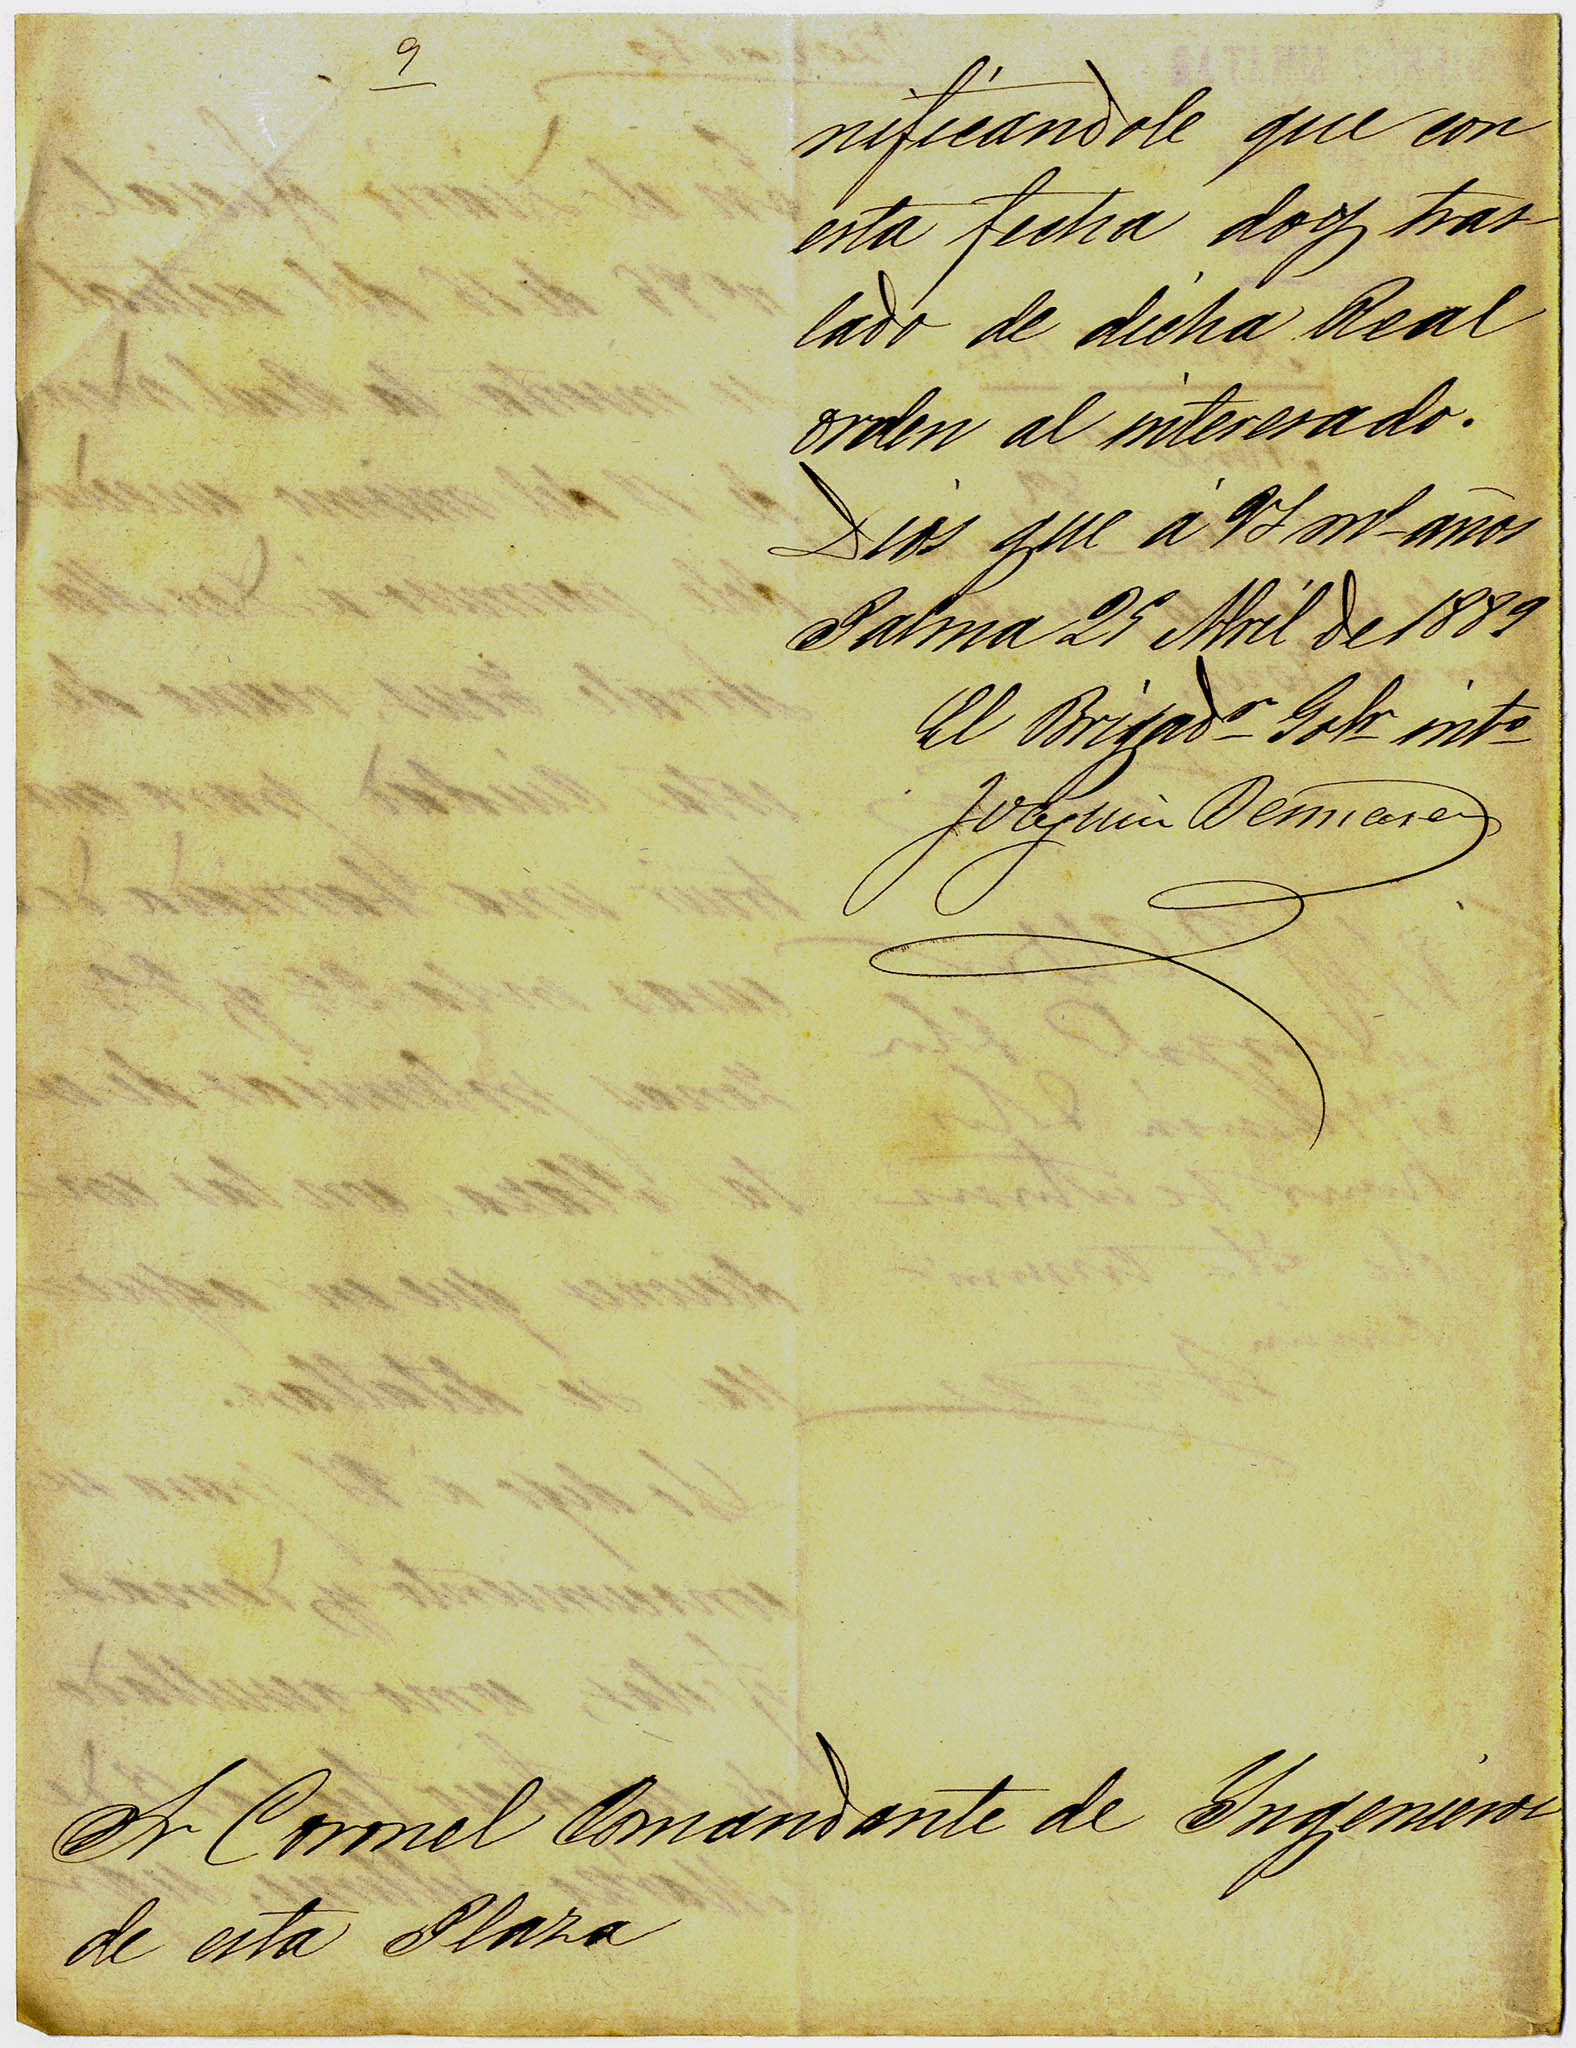 9
nificándole que con
esta fecha doy tras-
lado de dicha Real
orden al interesado.
Dios gue á VS ms años
Palma 25 Abril de 1889
El Brigadr Gobr intº
Joaquin
Sr Coronel Comandante de Ingenieros
de esta Plaza